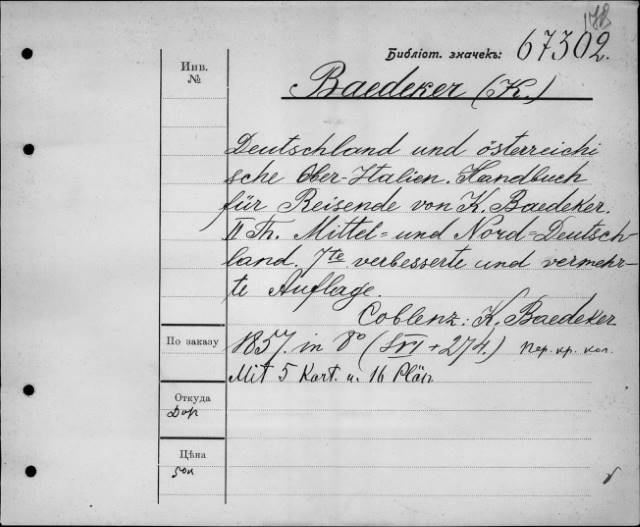 178
Библіот. значекъ: 67302.
Инв.
№
Baedeker (K.)
Deutschland und österreichi
sche Ober-Italien. Handbuch
für Reisende von K. Baedeker.
II Th. Mittel= und Nord=Deutsch-
land. 7te verbesserte und vermehr-
te Auflage.
Coblenz: K. Baedeker
По заказу
1857. in 8° ( + 274.) пер. кр. кол.
Mit 5 Kart. u. 16 Plän
Откуда
Дор
Цѣна